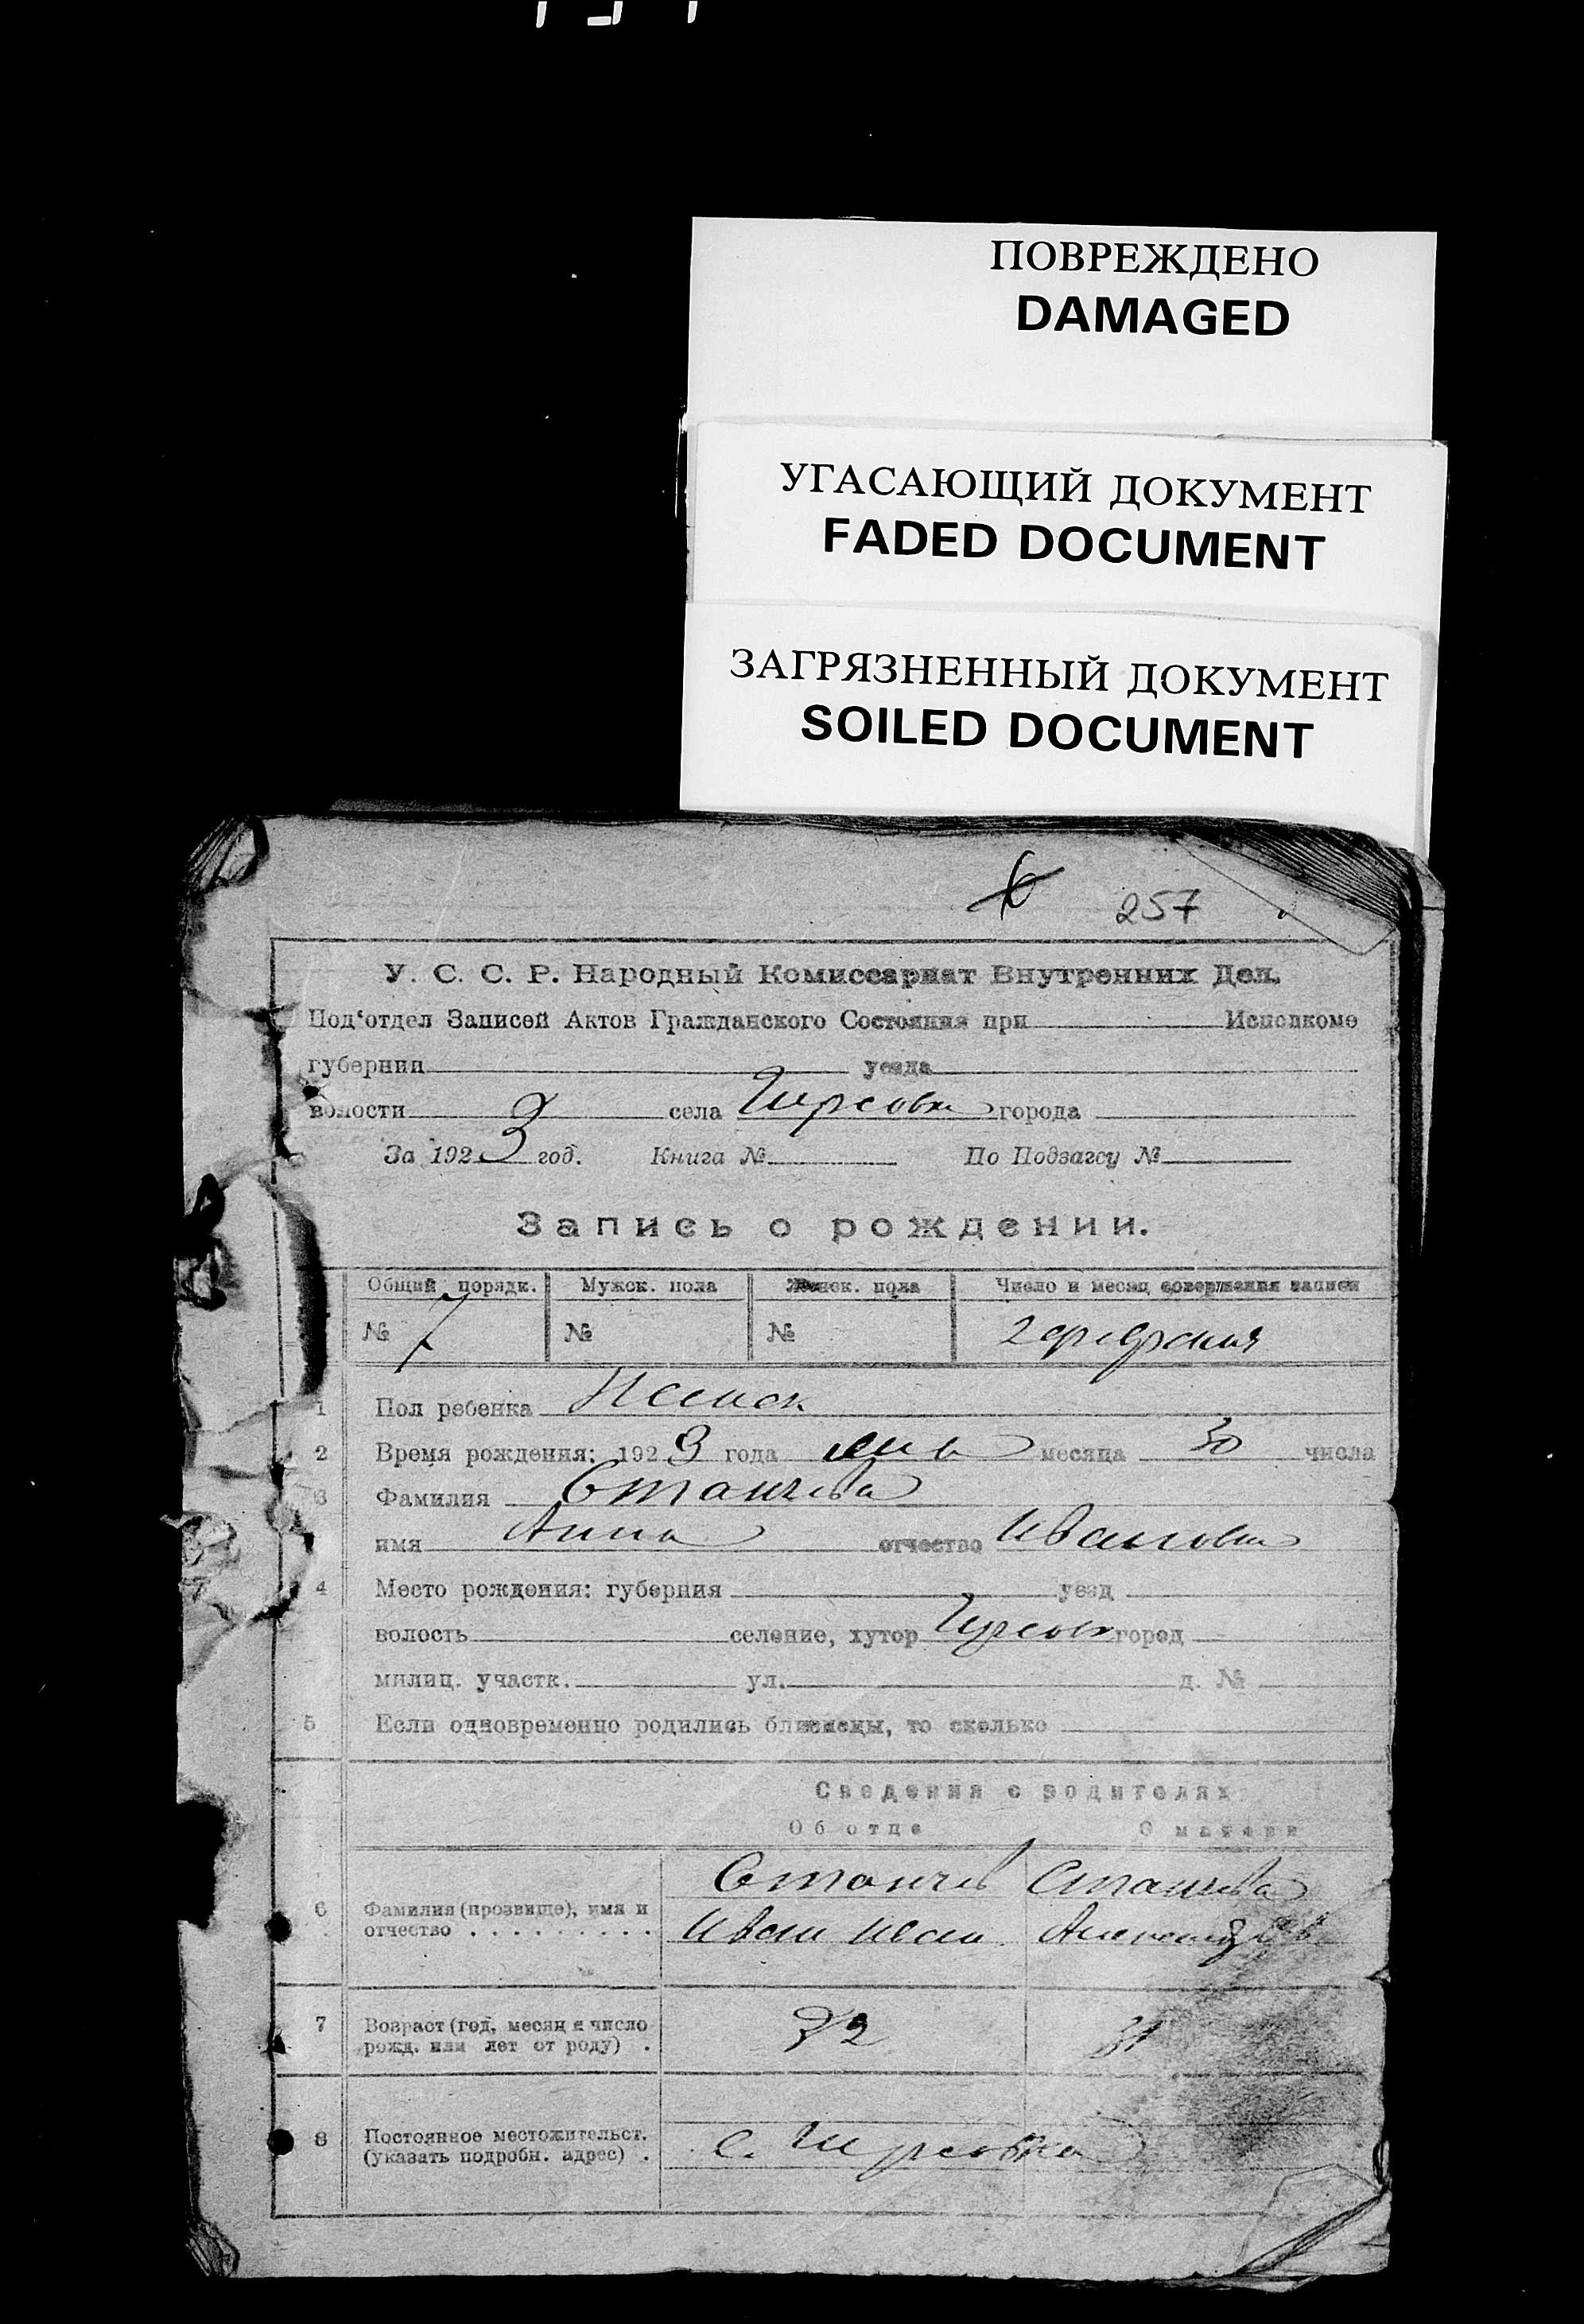 ПОВРЕЖДЕНО
DAMAGED
УГАСАЮЩИЙ ДОКУМЕНТ
FADED DOCUMENT
ЗАГРЯЗНЕННЫЙ ДОКУМЕНТ
SOILED DOCUMENT
6 257
У. С. С. Р. Народный Комиссариат Внутренних Дел.
Под‘отдел Записей Актов Гражданского Состояния при Исполкоме
губернии уезда
волости села города
За 1923 год. Книга № По Подзагсу №
Запись о рождении.
Общий порядк. Мужск. пола Женск. пола Число и месяц совершения записи
№ 7 № № 2 февраля
1 Пол ребенка Женск
2 Время рождения: 1923 года янв месяца 30 числа
3 Фамилия Станчева
имя Анна отчество Ивановна
4 Место рождения: губерния уезд
волость селение, хутор город
милиц. участк. ул. д. №
5 Если одновременно родились близнецы, то сколько
Сведения о родителях
Об отце О матери
6 Фамилия (прозвище), имя и отчество . . . . . . . . . Станчев Станчева
Иван Иван.
7 Возраст (год, месяц и число рожд. или лет от роду) . 32 31
8 Постоянное местожительст. (указать подробн. адрес) . с.